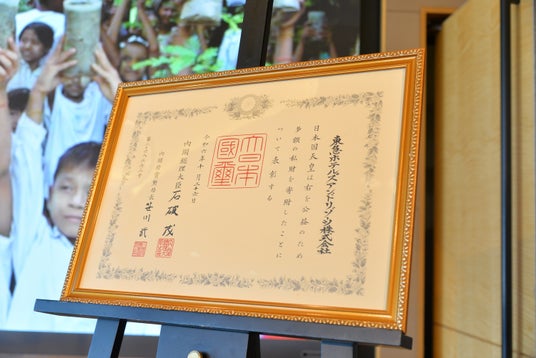 東急ホテルズアンドリゾーツ株式会社
日本国天皇は右を公益のため
多額の私財を寄附したことに
ついて表彰する
大日本
国璽
令和六年十月二十二日
内閣総理大臣石破茂
内閣府賞勲局長笹川武